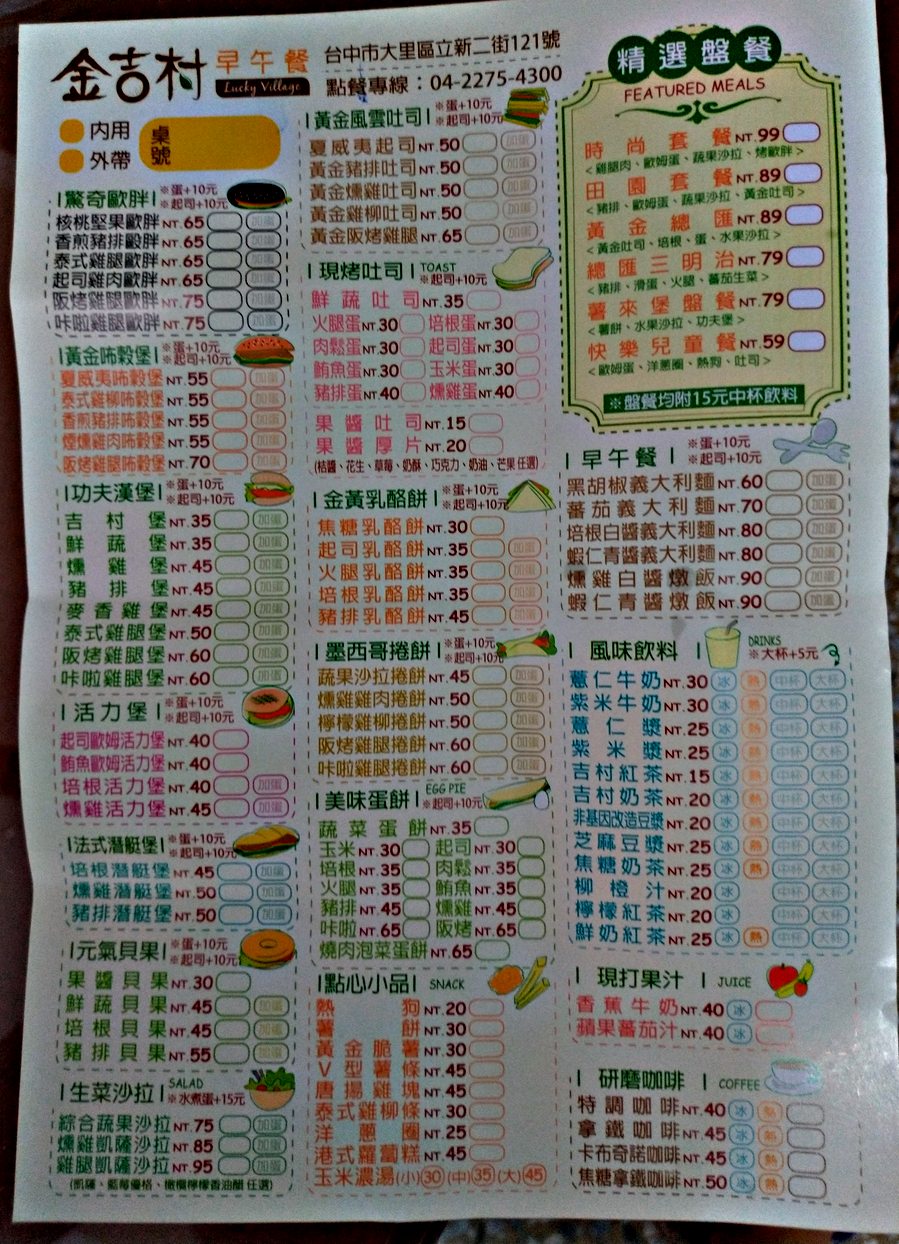 金吉村 早午餐
Lucky Village
台中市大里區立新二街121號
點餐專線：04-2275-4300
內用
外帶
桌號
驚奇歐胖 ※蛋+10元 ※起司+10元
核桃堅果歐胖 NT.65 加蛋
香煎豬排歐胖 NT.65 加蛋
泰式雞腿歐胖 NT.65 加蛋
起司雞肉歐胖 NT.65 加蛋
阪烤雞腿歐胖 NT.75 加蛋
咔啦雞腿歐胖 NT.75 加蛋
黃金咘穀堡 ※蛋+10元 ※起司+10元
夏威夷咘穀堡 NT.55 加蛋
泰式雞柳咘穀堡 NT.55 加蛋
香煎豬排咘穀堡 NT.55 加蛋
煙燻雞肉咘穀堡 NT.55 加蛋
阪烤雞腿咘穀堡 NT.70 加蛋
功夫漢堡 ※蛋+10元 ※起司+10元
吉村堡 NT.35 加蛋
鮮蔬堡 NT.35 加蛋
燻雞堡 NT.45 加蛋
豬排堡 NT.45 加蛋
麥香雞堡 NT.45 加蛋
泰式雞腿堡 NT.50 加蛋
阪烤雞腿堡 NT.60 加蛋
咔啦雞腿堡 NT.60 加蛋
活力堡 ※蛋+10元 ※起司+10元
起司歐姆活力堡 NT.40
鮪魚歐姆活力堡 NT.40
培根活力堡 NT.40 加蛋
燻雞活力堡 NT.45 加蛋
法式潛艇堡 ※蛋+10元 ※起司+10元
培根潛艇堡 NT.45 加蛋
燻雞潛艇堡 NT.50 加蛋
豬排潛艇堡 NT.50 加蛋
元氣貝果 ※蛋+10元 ※起司+10元
果醬貝果 NT.30
鮮蔬貝果 NT.45 加蛋
培根貝果 NT.45 加蛋
豬排貝果 NT.55 加蛋
生菜沙拉 SALAD ※水煮蛋+15元
綜合蔬果沙拉 NT.75 加蛋
燻雞凱薩沙拉 NT.85 加蛋
雞腿凱薩沙拉 NT.95 加蛋
(凱薩、藍莓優格、橄欖檸檬香油醋 任選)
黃金風雲吐司 ※蛋+10元 ※起司+10元
夏威夷起司 NT.50 加蛋
黃金豬排吐司 NT.50 加蛋
黃金燻雞吐司 NT.50 加蛋
黃金雞柳吐司 NT.50 加蛋
黃金阪烤雞腿 NT.65 加蛋
現烤吐司 TOAST ※起司+10元
鮮蔬吐司 NT.35
火腿蛋 NT.30 培根蛋 NT.30
肉鬆蛋 NT.30 起司蛋 NT.30
鮪魚蛋 NT.30 玉米蛋 NT.30
豬排蛋 NT.40 燻雞蛋 NT.40
果醬吐司 NT.15
果醬厚片 NT.20
(桔醬、花生、草莓、奶酥、巧克力、奶油、芒果 任選)
金黃乳酪餅 ※蛋+10元 ※起司+10元
焦糖乳酪餅 NT.30
起司乳酪餅 NT.35 加蛋
火腿乳酪餅 NT.35 加蛋
培根乳酪餅 NT.35 加蛋
豬排乳酪餅 NT.45 加蛋
墨西哥捲餅 ※蛋+10元 ※起司+10元
蔬果沙拉捲餅 NT.45 加蛋
燻雞雞肉捲餅 NT.50 加蛋
檸檬雞柳捲餅 NT.50 加蛋
阪烤雞腿捲餅 NT.60 加蛋
咔啦雞腿捲餅 NT.60 加蛋
美味蛋餅 EGG PIE ※起司+10元
蔬菜蛋餅 NT.35
玉米 NT.30 起司 NT.30
培根 NT.35 肉鬆 NT.35
火腿 NT.35 鮪魚 NT.35
豬排 NT.45 燻雞 NT.45
咔啦 NT.65 阪烤 NT.65
燒肉泡菜蛋餅 NT.65
點心小品 SNACK
熱狗 NT.20
薯餅 NT.30
黃金脆薯 NT.30
V型薯條 NT.45
唐揚雞塊 NT.45
泰式雞柳條 NT.30
洋蔥圈 NT.25
港式蘿蔔糕 NT.45
玉米濃湯 (小)30 (中)35 (大)45
精選盤餐
FEATURED MEALS
時尚套餐 NT.99
<雞腿肉、歐姆蛋、蔬果沙拉、烤歐胖>
田園套餐 NT.89
<豬排、歐姆蛋、蔬果沙拉、黃金吐司>
黃金總匯 NT.89
<黃金吐司、培根、蛋、水果沙拉>
總匯三明治 NT.79
<豬排、滑蛋、火腿、蕃茄生菜>
薯來堡盤餐 NT.79
<薯餅、水果沙拉、功夫堡>
快樂兒童餐 NT.59
<歐姆蛋、洋蔥圈、熱狗、吐司>
※盤餐均附15元中杯飲料
早午餐 ※蛋+10元 ※起司+10元
黑胡椒義大利麵 NT.60 加蛋
蕃茄義大利麵 NT.70 加蛋
培根白醬義大利麵 NT.80 加蛋
蝦仁青醬義大利麵 NT.80 加蛋
燻雞白醬燉飯 NT.90 加蛋
蝦仁青醬燉飯 NT.90 加蛋
風味飲料 DRINKS ※大杯+5元
薏仁牛奶 NT.30 冰 熱 中杯 大杯
紫米牛奶 NT.30 冰 熱 中杯 大杯
薏仁漿 NT.25 冰 熱 中杯 大杯
紫米漿 NT.25 冰 熱 中杯 大杯
吉村紅茶 NT.15 冰 熱 中杯 大杯
吉村奶茶 NT.20 冰 熱 中杯 大杯
非基因改造豆漿 NT.20 冰 熱 中杯 大杯
芝麻豆漿 NT.25 冰 熱 中杯 大杯
焦糖奶茶 NT.25 冰 熱 中杯 大杯
柳橙汁 NT.20 冰 中杯 大杯
檸檬紅茶 NT.20 冰 中杯 大杯
鮮奶紅茶 NT.25 冰 熱 中杯 大杯
現打果汁 JUICE
香蕉牛奶 NT.40 冰
蘋果蕃茄汁 NT.40 冰
研磨咖啡 COFFEE
特調咖啡 NT.40 冰 熱
拿鐵咖啡 NT.45 冰 熱
卡布奇諾咖啡 NT.45 冰 熱
焦糖拿鐵咖啡 NT.50 冰 熱